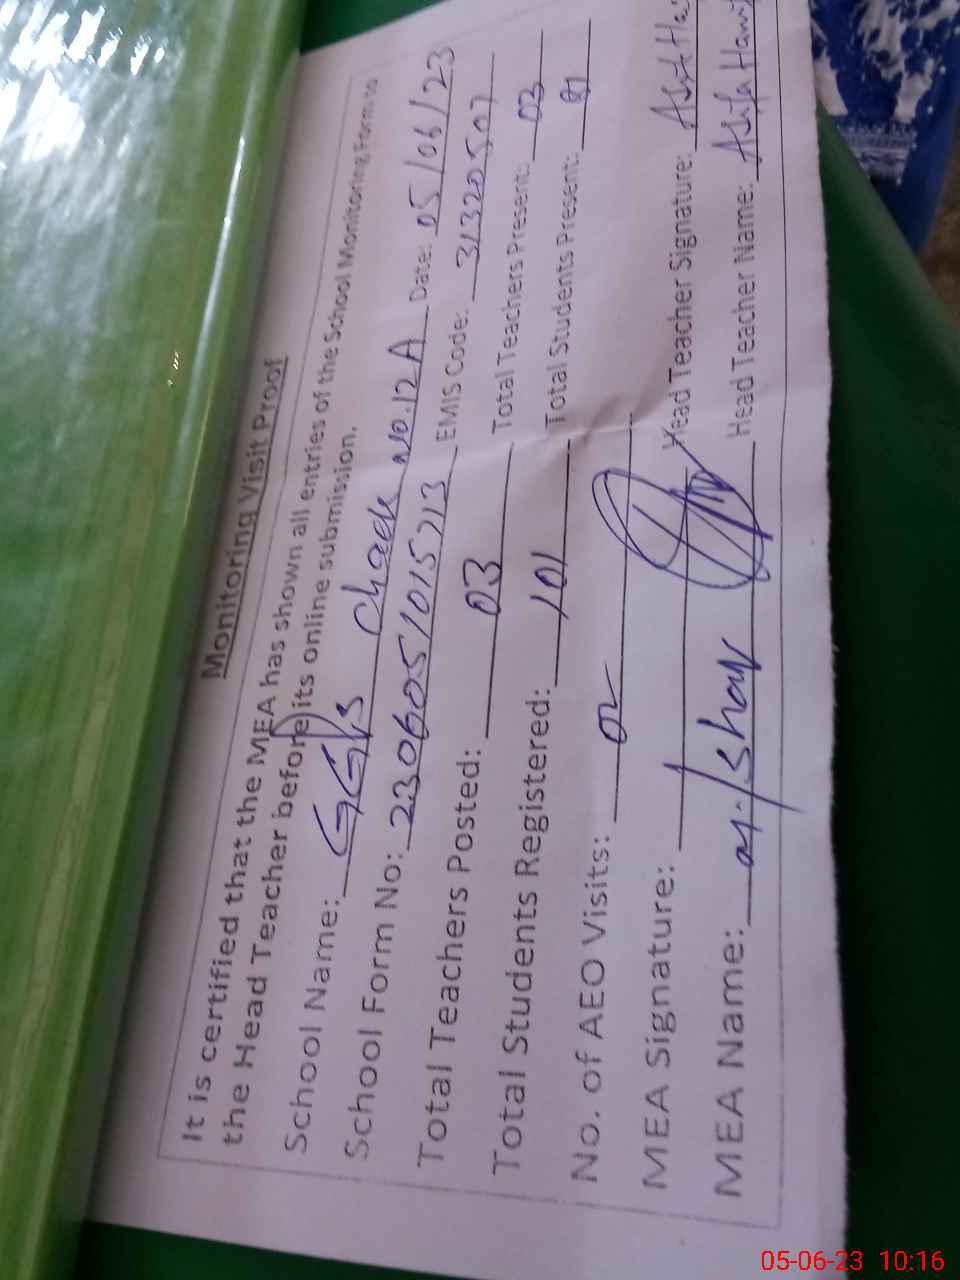 Monitoring Visit Proof
It is certified that the MEA has shown all entries of the School Monitoring Form to
the Head Teacher before its online submission.
School Name: GGPS Chack No.12A Date: 05/06/23
School Form No: 2306051015713 EMIS Code: 31320507
Total Teachers Posted: 03 Total Teachers Present: 03
Total Students Registered: 101 Total Students Present:
No. of AEO Visits: 02
MEA Signature: Head Teacher Signature:
MEA Name: Head Teacher Name:
05-06-23 10:16